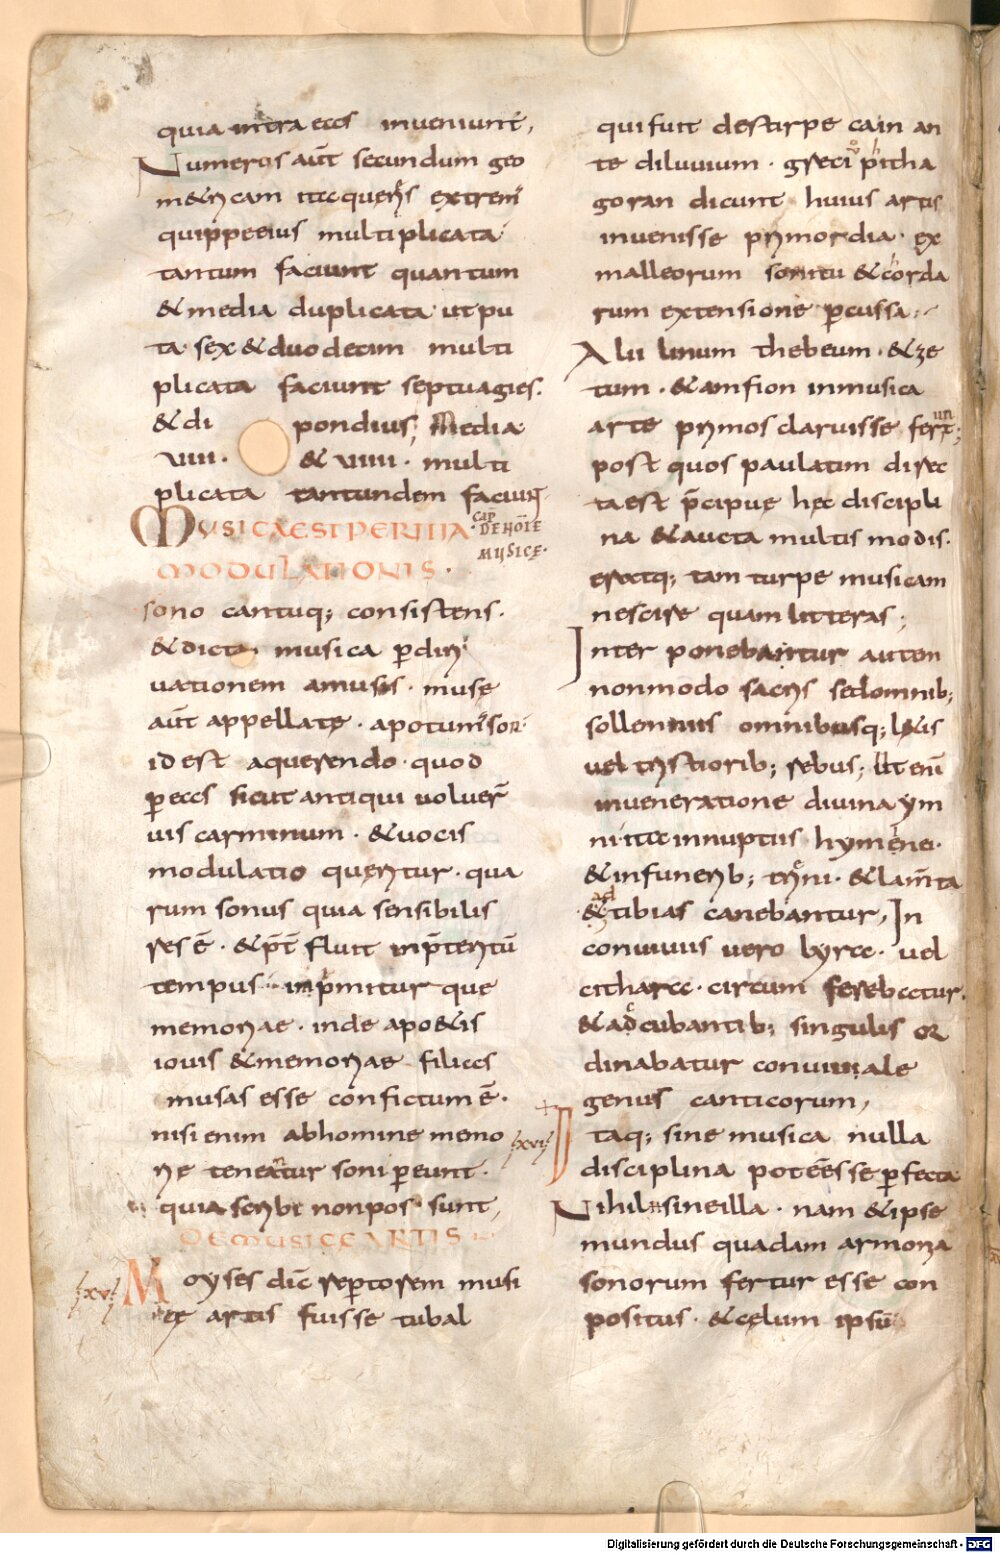 quia intra eas inueniunt̄,
Numerus aūt secundum geo
m&ricam ita querīs extremi
quippe eius multiplicata
tantum faciunt quantum
& media duplicata ut pu
ta sex & duodecim multi
plicata faciunt septuagies.
& di pondius; Media
VIII. & VIIII. multi
plicata tantundem faciunt
MUSICA EST PERITIA
CAP̄ DE NOIE MUSICĘ.
MODULATIONIS.
sono cantuq; consistens.
& dicta musica p̱ diri
uationem a musis. musę
aūt appellatę. apotumsor
id est a querendo. quod
p̱ eas sicut antiqui uoluer̄
uis carminum. & uocis
modulatio quęritur. qua
rum sonus quia sensibilis
res ē. & p̄t fluit in p̄teritū
tempus inprimitur que
memoriae. inde apo&is
iouis & memoriae filias
musas esse confictum ē.
nisi enim ab homine memo
rię teneantur soni p̱eunt.
quia scribi non pos sunt,
DE MUSICE ARTIS
lxvi
Moyses dic̄ rep̱torem musi
cę artis fuisse tubal
qui fuit de stirpe cain an
te diluuium. greci pitha
goran dicunt huius artis
inuenisse primordia. ex
malleorum sonitu & corda
rum extensione p̱cussa.
Alii linum thebeum. & ze
tum. & amfion in musica
arte primos claruisse ferunt;
post quos paulatim direc
ta est p̄cipuę hęc discipli
na & aucta multis modis.
eratq; tam turpe musicam
nescire quam litteras;
Inter ponebantur autem
non modo sacris sed omnib;
sollemnis omnibusq; l&is
uel tristiorib; rebus; Ut enī
in ueneratione diuina ym
ni ita in nuptiis hymenei.
& in funerib; treni. & lam̄ta
ad tibias canebantur, In
conuiuiis uero lyra. uel
cithara. circum ferebatur.
& adcubantib; singulis or
dinabatur conuiuale
genus canticorum,
lxvii
Itaq; sine musica nulla
disciplina potē esse p̱fecta
Nihil sine illa. nam & ipse
mundus quadam armonia
sonorum fertur esse con
positus. & cęlum ipsū
Digitalisierung gefördert durch die Deutsche Forschungsgemeinschaft - DFG